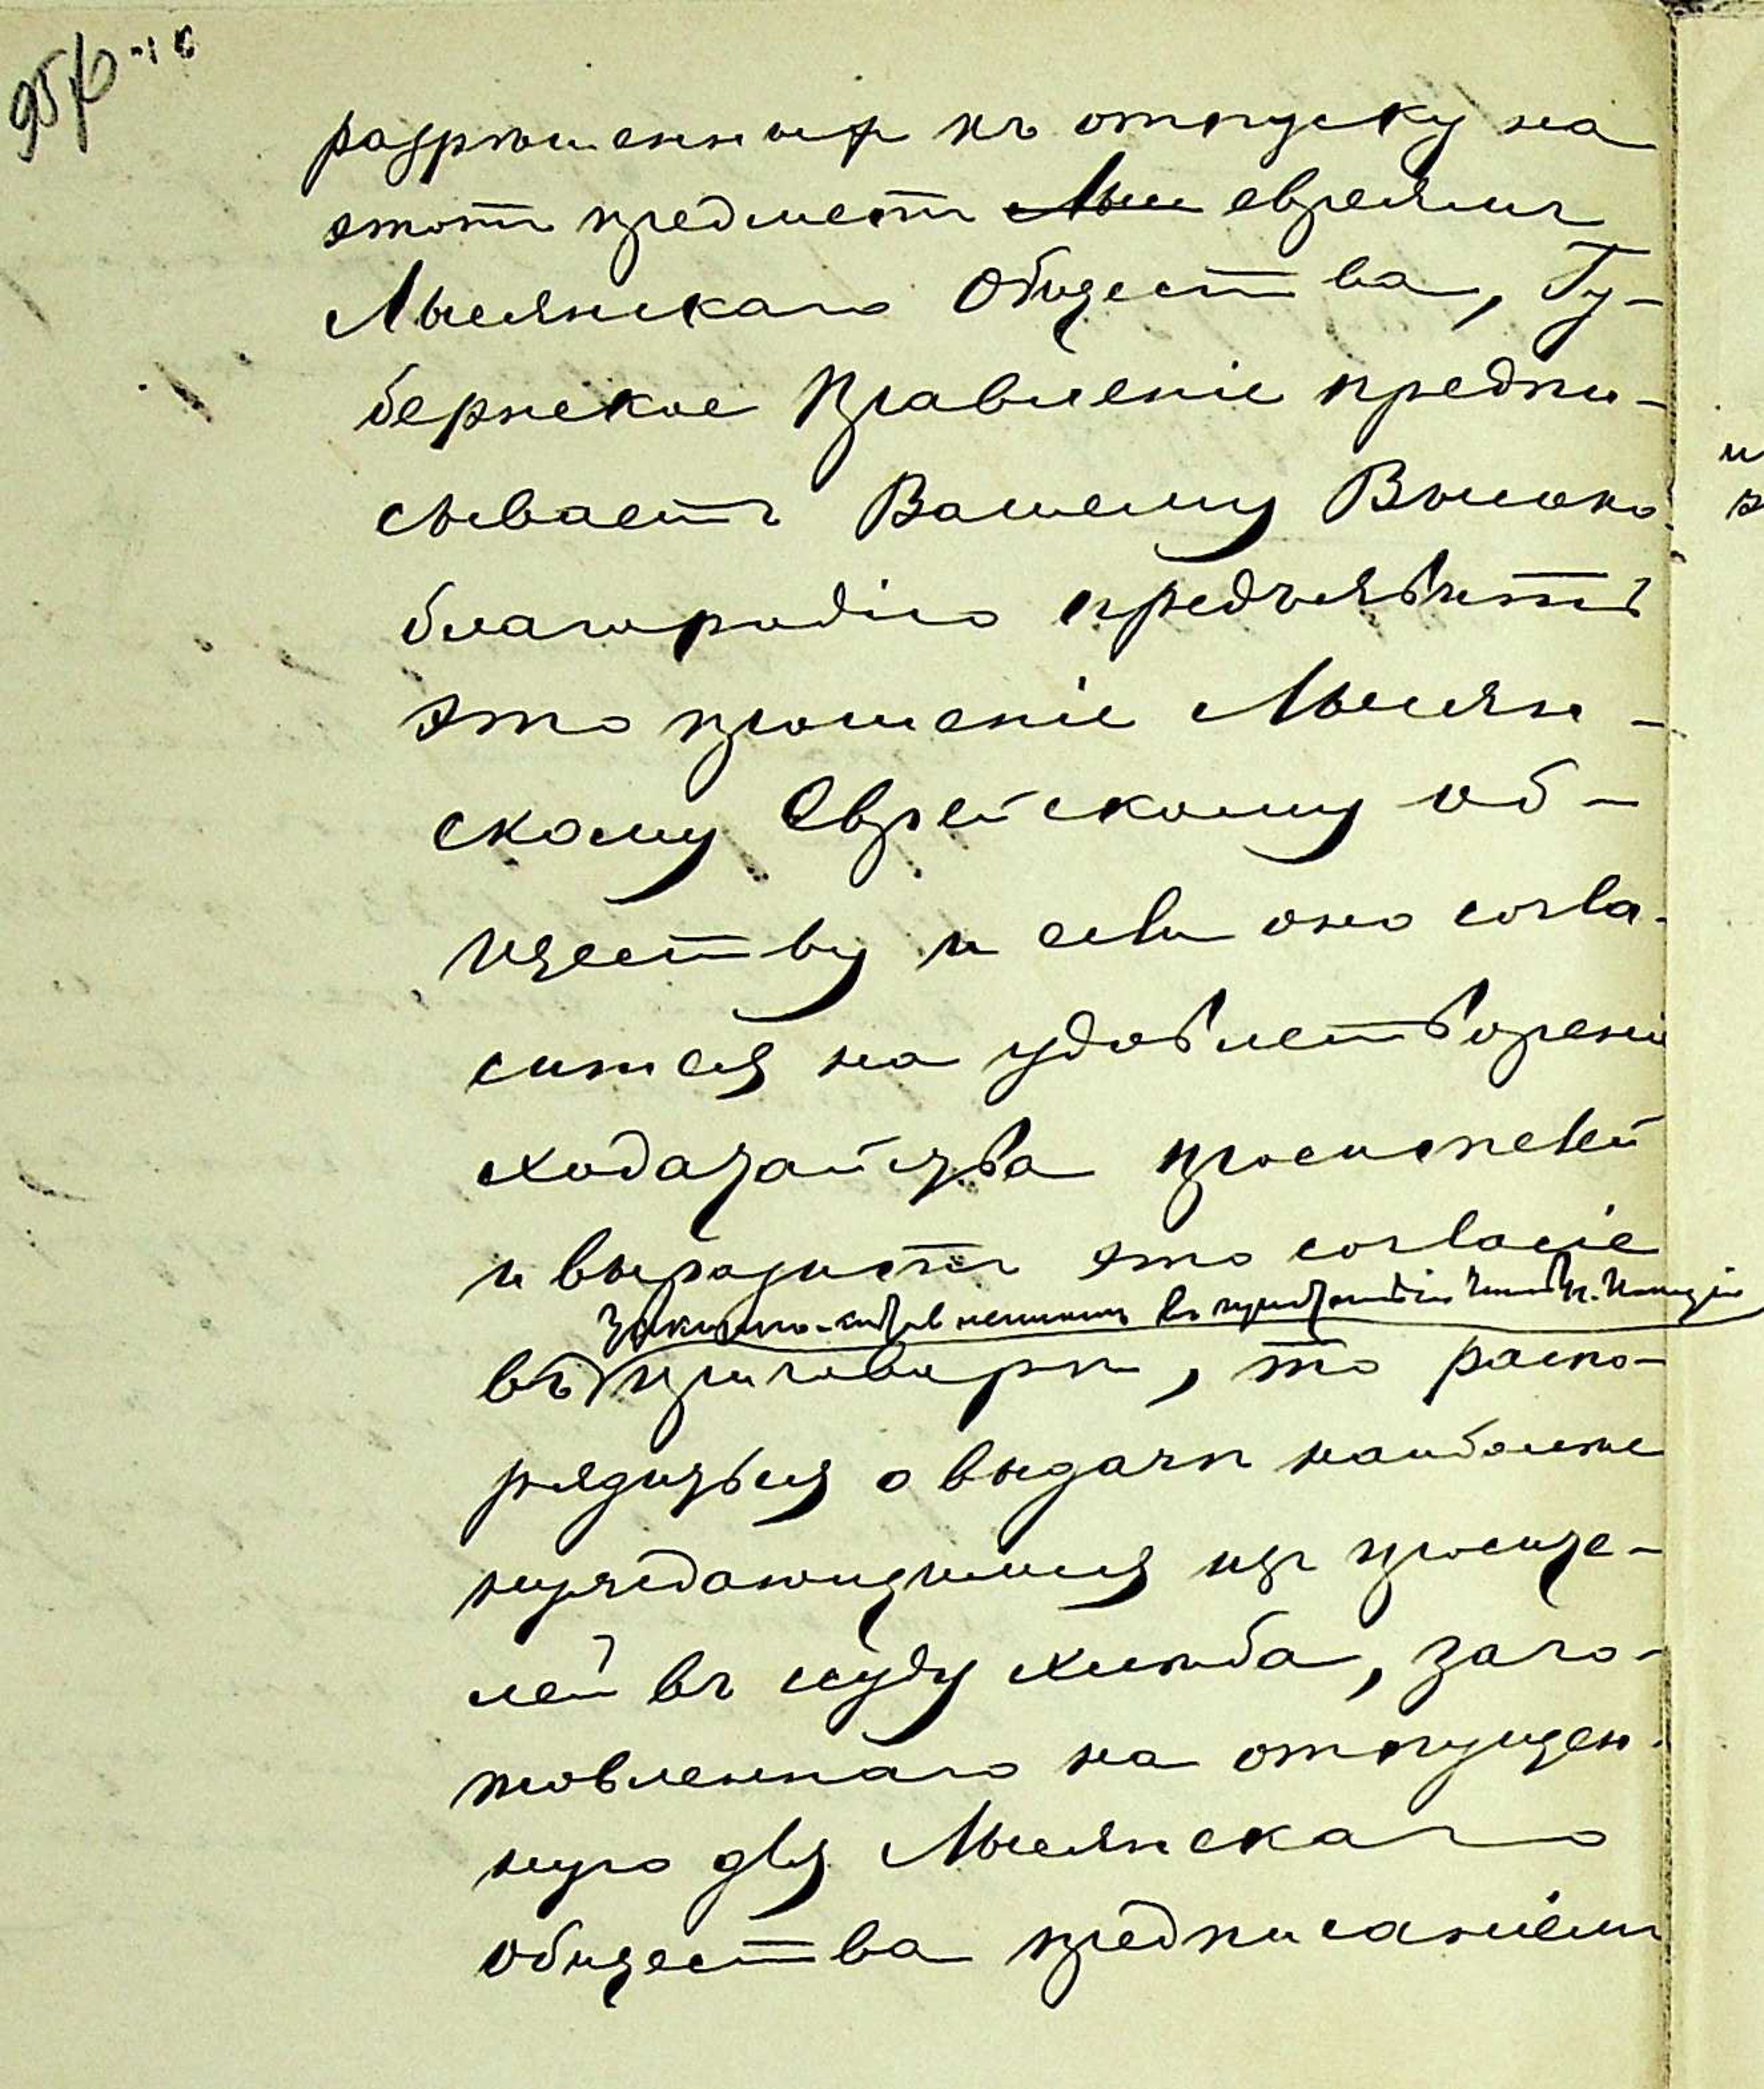 95/6
разрѣшенныхъ къ отпуску на
этотъ предметъ Лыс евреямъ
Лысянскаго Общества, Гу-
бернское Правленіе предпи-
сываетъ Вашему Высоко
благородію предъявить
это прошеніе Лысян-
скому Еврейскому об-
ществу и если оно согла-
сится на удовлетвореніе
ходатайства просителей
и выразитъ это согласіе
законно-составленнымъ въ Полиціи
въ приговорѣ, то распо-
рядиться о выдачѣ наиболѣе
нуждающимися изъ просите-
лей въ ссуду хлѣба, заго-
товленнаго на отпущен-
ную для Лысянскаго
общества предписаніемъ